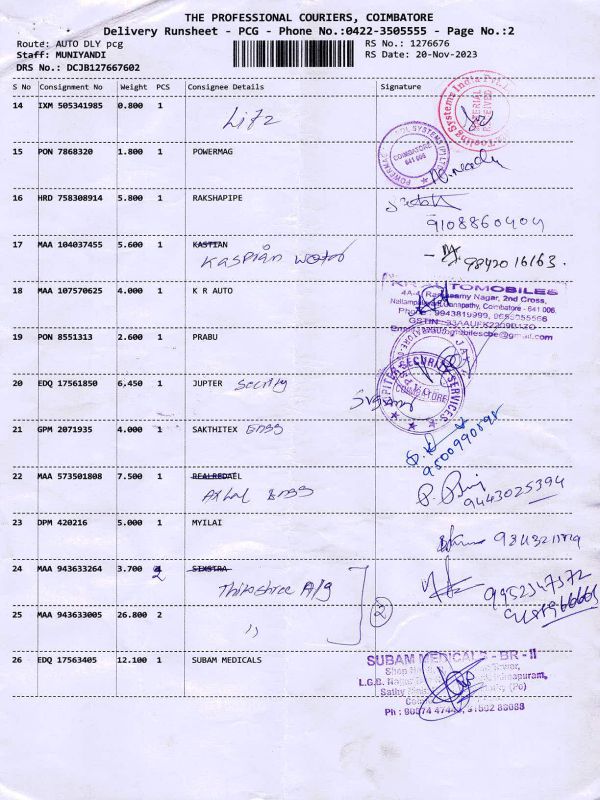 THE PROFESSIONAL COURIERS, COIMBATORE
Delivery Runsheet - PCG - Phone No.:0422-3505555 - Page No.:2
Route: AUTO DLY pcg
Staff: MUNIYANDI
DRS No.: DCJB127667602
RS No.: 1276676
RS Date: 20-Nov-2023
S No Consignment No Weight PCS Consignee Details Signature
14 IXM 505341985 0.800 1
15 PON 7868320 1.800 1 POWERMAG
COIMBATORE
641 006
16 HRD 758308914 5.800 1 RAKSHAPIPE
9108860404
17 MAA 104037455 5.600 1 KASTIAN
Kaspian water
9842016163.
18 MAA 107570625 4.000 1 K R AUTO
2nd Cross,
Coimbatore - 641 006.
19 PON 8551313 2.600 1 PRABU
20 EDQ 17561850 6,450 1 JUPTER Secrity
SECURITY SERVICES
COIMBATORE
21 GPM 2071935 4.000 1 SAKTHITEX Engg
9500990898
22 MAA 573501808 7.500 1
Engg
9443025394
23 DPM 420216 5.000 1 MYILAI
24 MAA 943633264 3.700 2 SIXSTRA
Thikashree A/g
9952347372
2
25 MAA 943633005 26.800 2
"
26 EDQ 17563405 12.100 1 SUBAM MEDICALS
SUBAM MEDICALS - BR - II